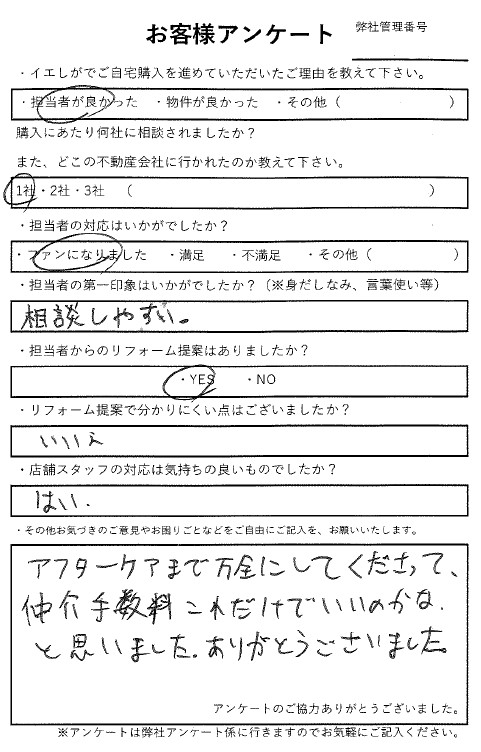 お客様アンケート
弊社管理番号
・イエしがでご自宅購入を進めていただいたご理由を教えて下さい。
・担当者が良かった ・物件が良かった ・その他（ ）
購入にあたり何社に相談されましたか？
また、どこの不動産会社に行かれたのか教えて下さい。
1社・2社・3社 （ ）
・担当者の対応はいかがでしたか？
・ファンになりました ・満足 ・不満足 ・その他（ ）
・担当者の第一印象はいかがでしたか？（※身だしなみ、言葉使い等）
相談しやすい。
・担当者からのリフォーム提案はありましたか？
・YES ・NO
・リフォーム提案で分かりにくい点はございましたか？
いいえ
・店舗スタッフの対応は気持ちの良いものでしたか？
はい.
・その他お気づきのご意見やお困りごとなどをご自由にご記入を、お願いいたします。
アフターケアまで万全にしてくださって、
仲介手数料これだけでいいのかな.
と思いました。ありがとうございました。
アンケートのご協力ありがとうございました。
※アンケートは弊社アンケート係に行きますのでお気軽にご記入ください。